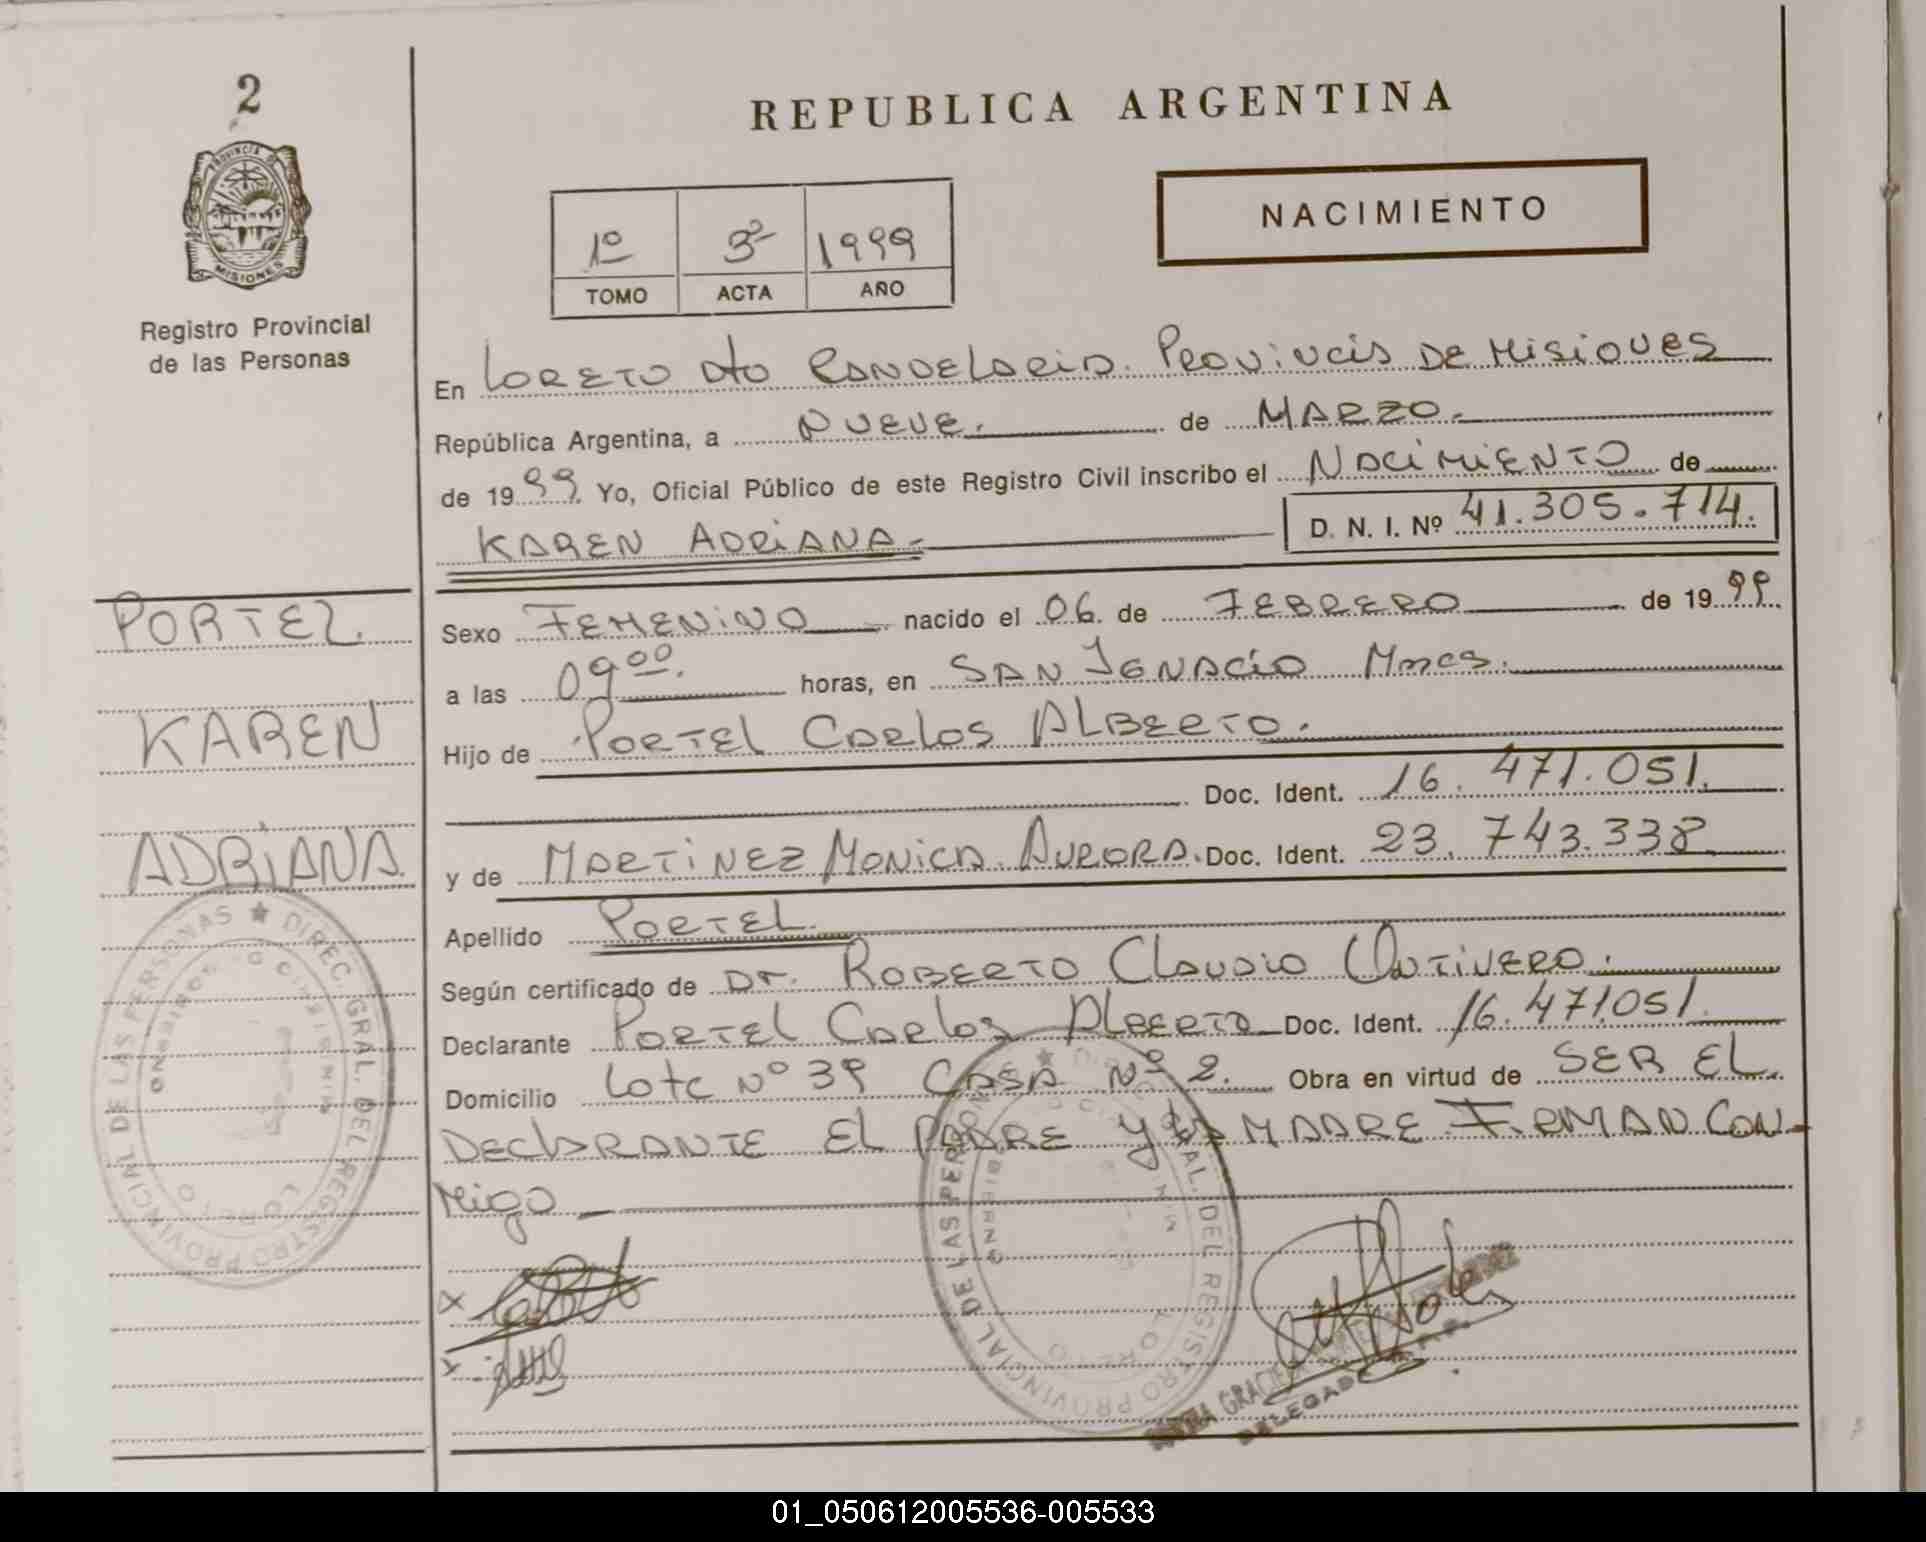 2
PROVINCIA DE
MISIONES
Registro Provincial
de las Personas
PORTEL
KAREN
ADRIANA
DIREC. GRAL. DEL REGISTRO PROVINCIAL DE LAS PERSONAS
LORETO
REPUBLICA ARGENTINA
NACIMIENTO
1º 3º 1999
TOMO ACTA AÑO
En LORETO Dto CANDELARIA. PROVINCIA DE MISIONES
República Argentina, a NUEVE. de MARZO.
de 1999. Yo, Oficial Público de este Registro Civil inscribo el NACIMIENTO de
KAREN ADRIANA.- D. N. I. Nº 41.305.714.
Sexo FEMENINO nacido el 06. de FEBRERO de 1999.
a las 09 00. horas, en SAN IGNACIO Mnes.
Hijo de PORTEL CARLOS ALBERTO.
Doc. Ident. 16.471.051.
y de MARTINEZ MONICA AURORA. Doc. Ident. 23.743.338
Apellido PORTEL.
Según certificado de Dr. ROBERTO CLAUDIO ONTIVERO.
Declarante PORTEL CARLOS ALBERTO Doc. Ident. 16.471.051.
Domicilio Lote Nº 39 CASA Nº 2. Obra en virtud de SER EL
DECLARANTE EL PADRE Y LA MADRE FIRMAN CON-
MIGO
DIREC. GRAL. DEL REGISTRO PROVINCIAL DE LAS PERSONAS
LORETO
DELEGADA
01_050612005536-005533